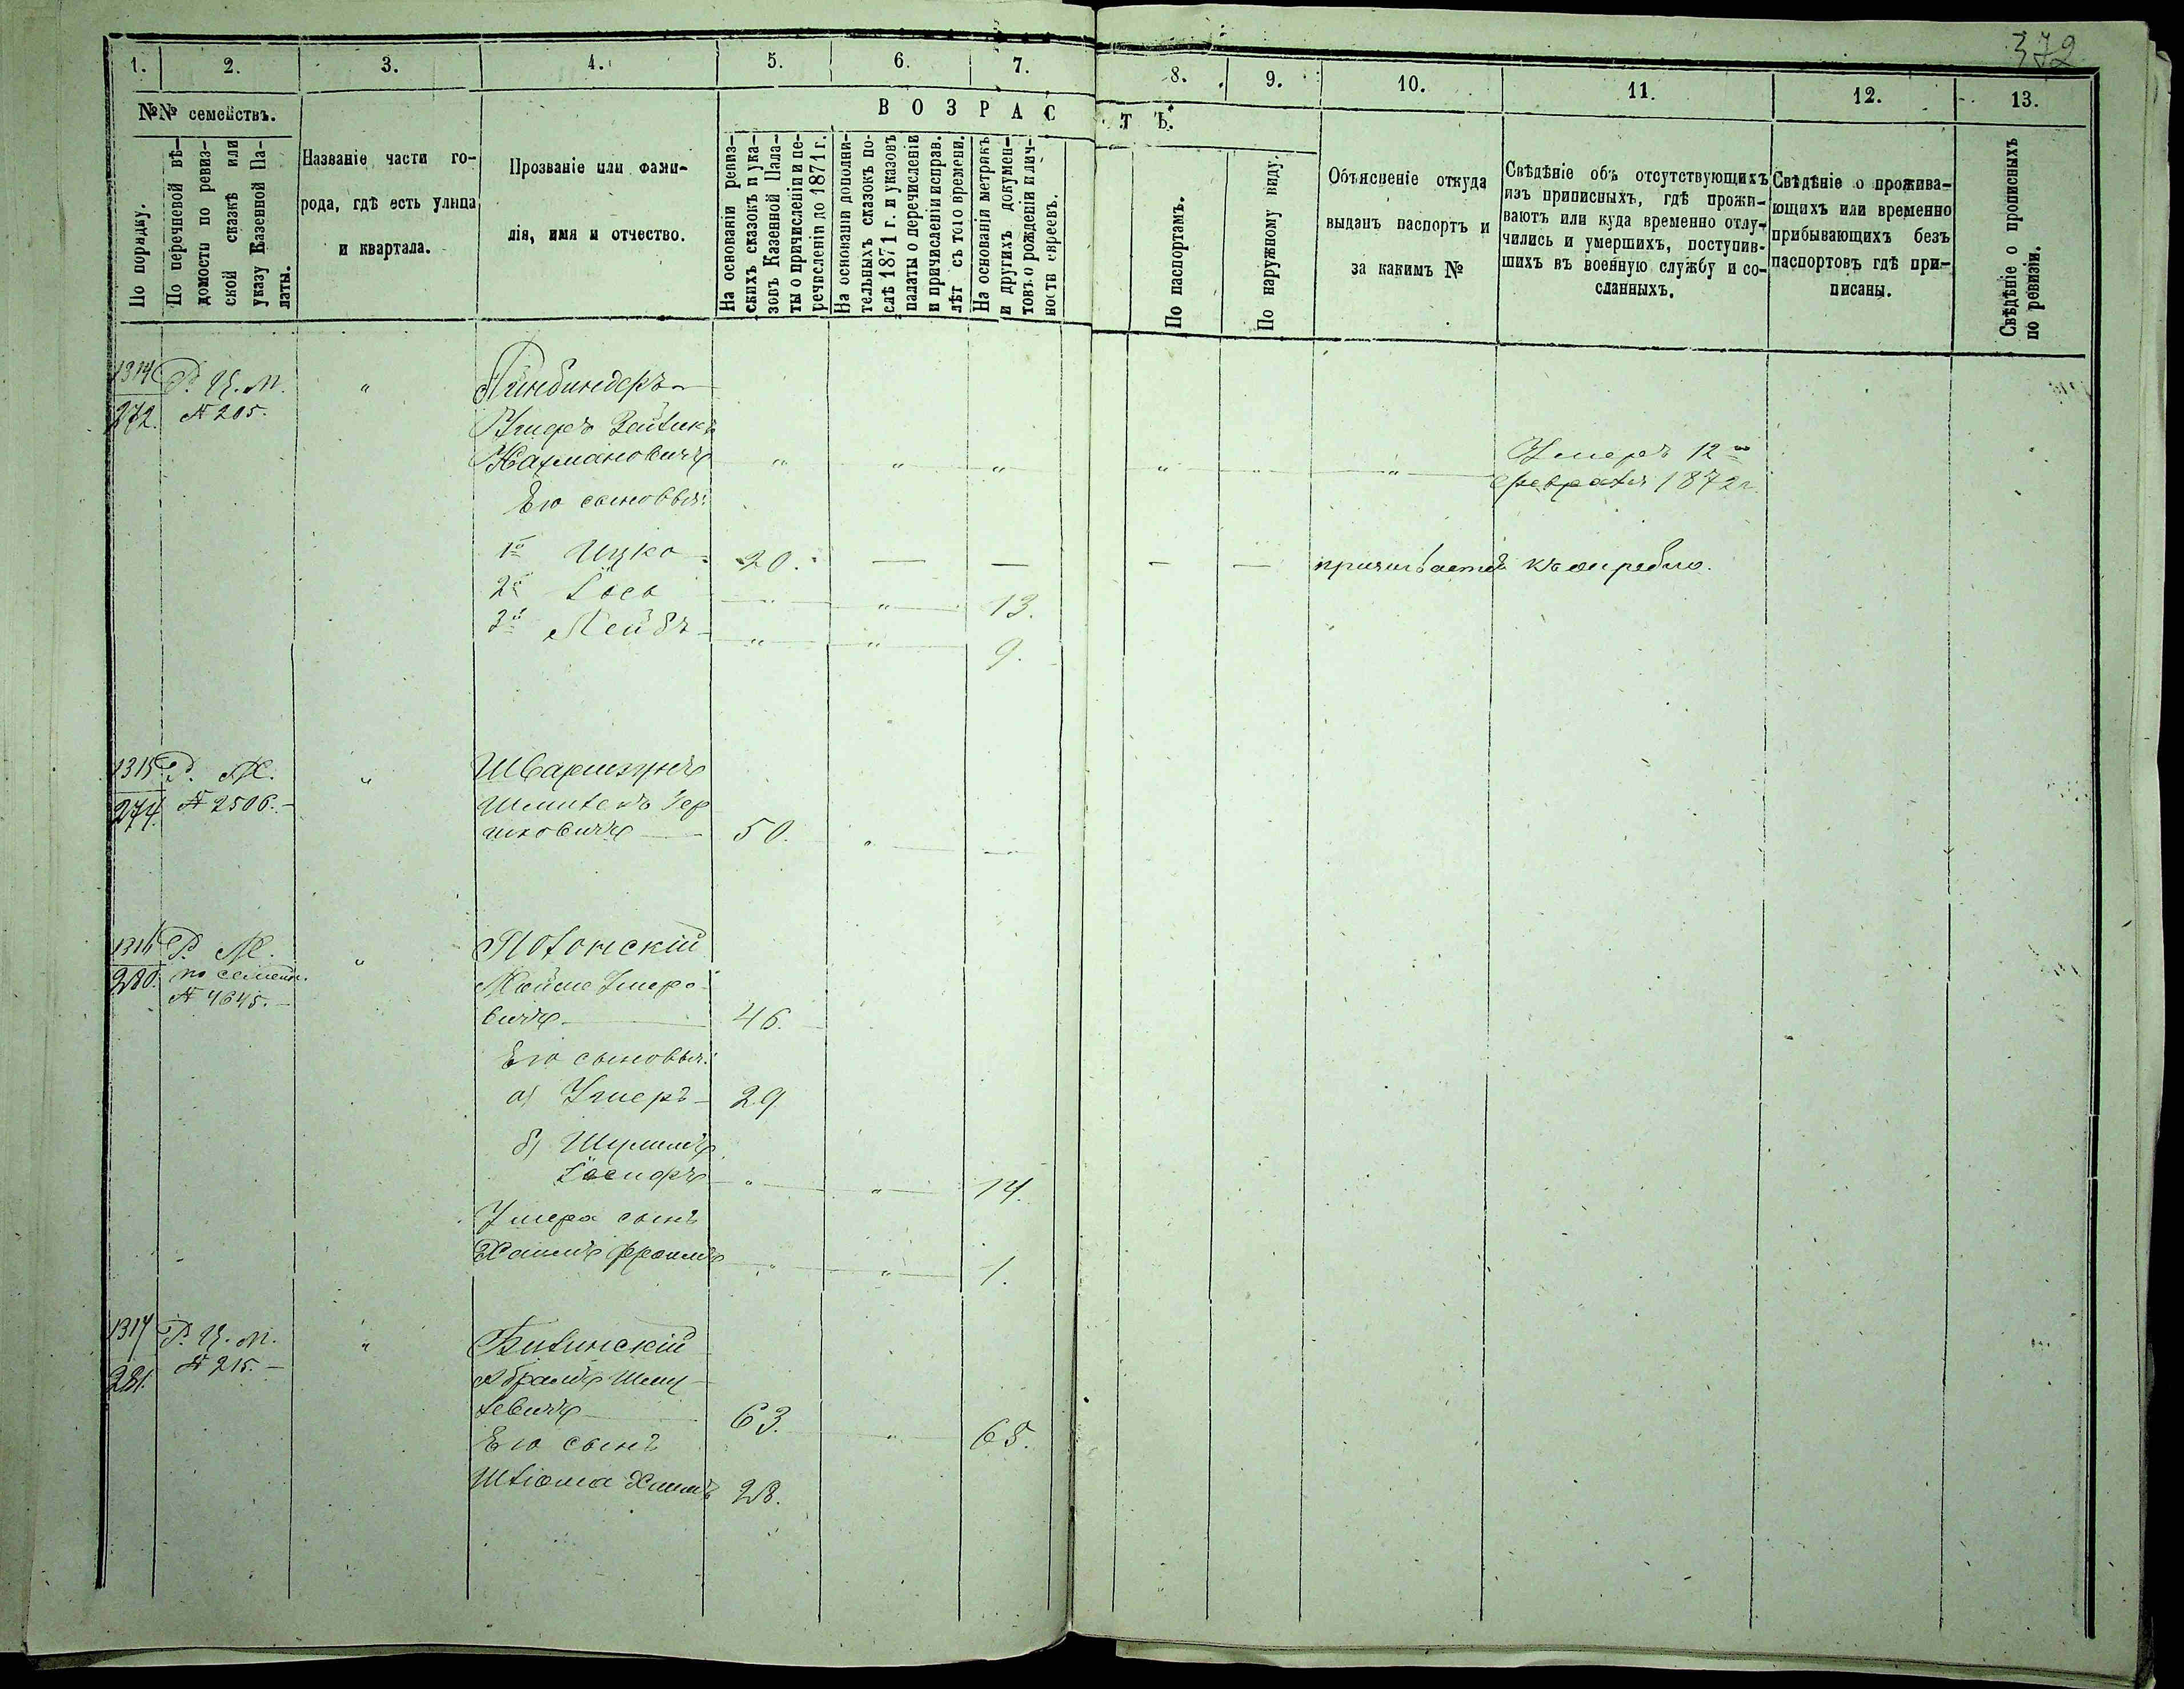 372
1. 2. 3. 4. 5. 6. 7. 8. 9. 10. 11. 12. 13.
№№ семействъ.
По порядку.
По перечневой вѣ-
домости по ревиз-
ской сказкѣ или
указу Казенной Па-
латы.
Названіе части го-
рода, гдѣ есть улица
и квартала.
Прозваніе или фами-
лія, имя и отчество.
ВОЗРАСТЪ.
На основаніи ревиз-
скихъ сказокъ и ука-
зовъ Казенной Пала-
ты о причисленіи и пе-
речисленіи до 1871 г.
На основаніи дополни-
тельныхъ сказокъ по-
слѣ 1871 г. и указовъ
палаты о перечисленіи
и причисленіи исправ.
лѣт съ того времени.
На основаніи метрикъ
и другихъ докумен-
товъ о рожденіи и лич-
ности евреевъ.
По паспортамъ.
По наружному виду.
Объясненіе откуда
выданъ паспортъ и
за какимъ №
Свѣдѣніе объ отсутствующихъ
изъ приписныхъ, гдѣ прожи-
ваютъ или куда временно отлу-
чились и умершихъ, поступив-
шихъ въ военную службу и со-
сланныхъ.
Свѣдѣніе о прожива-
ющихъ или временно
прибывающихъ безъ
паспортовъ гдѣ при-
писаны.
Свѣдѣніе о прописныхъ
по ревизіи.
1314 Р. Ц. М. " Линбиндеръ
272. № 205.
Нахмановичъ " " " " " " Умеръ 12го
февраля 1872 г.
Его сыновья:
1й Ицко 20. — — — — призывается къ жребію.
2й Іось " " 13.
3й Лейбъ " " 9.
1315 Р. М. " Шварцзунъ
274. № 2506. Шмилекъ Гер
шковичъ 50. "
1316 Р. М. " Полонскій
280. по семейн. Мойше Умеро
№ 4645. вичъ 46.
Его сыновья:
а) Умеръ 29
б) Шулимъ
Іосифъ " " 14.
Умера сынъ
Хаимъ Фроимъ " " 1.
1317 Р. Ц. М. " Билинскій
281. № 215. Абрамъ Шму
левичъ 63. " 65.
Его сынъ
Шліома Хаимъ 28.